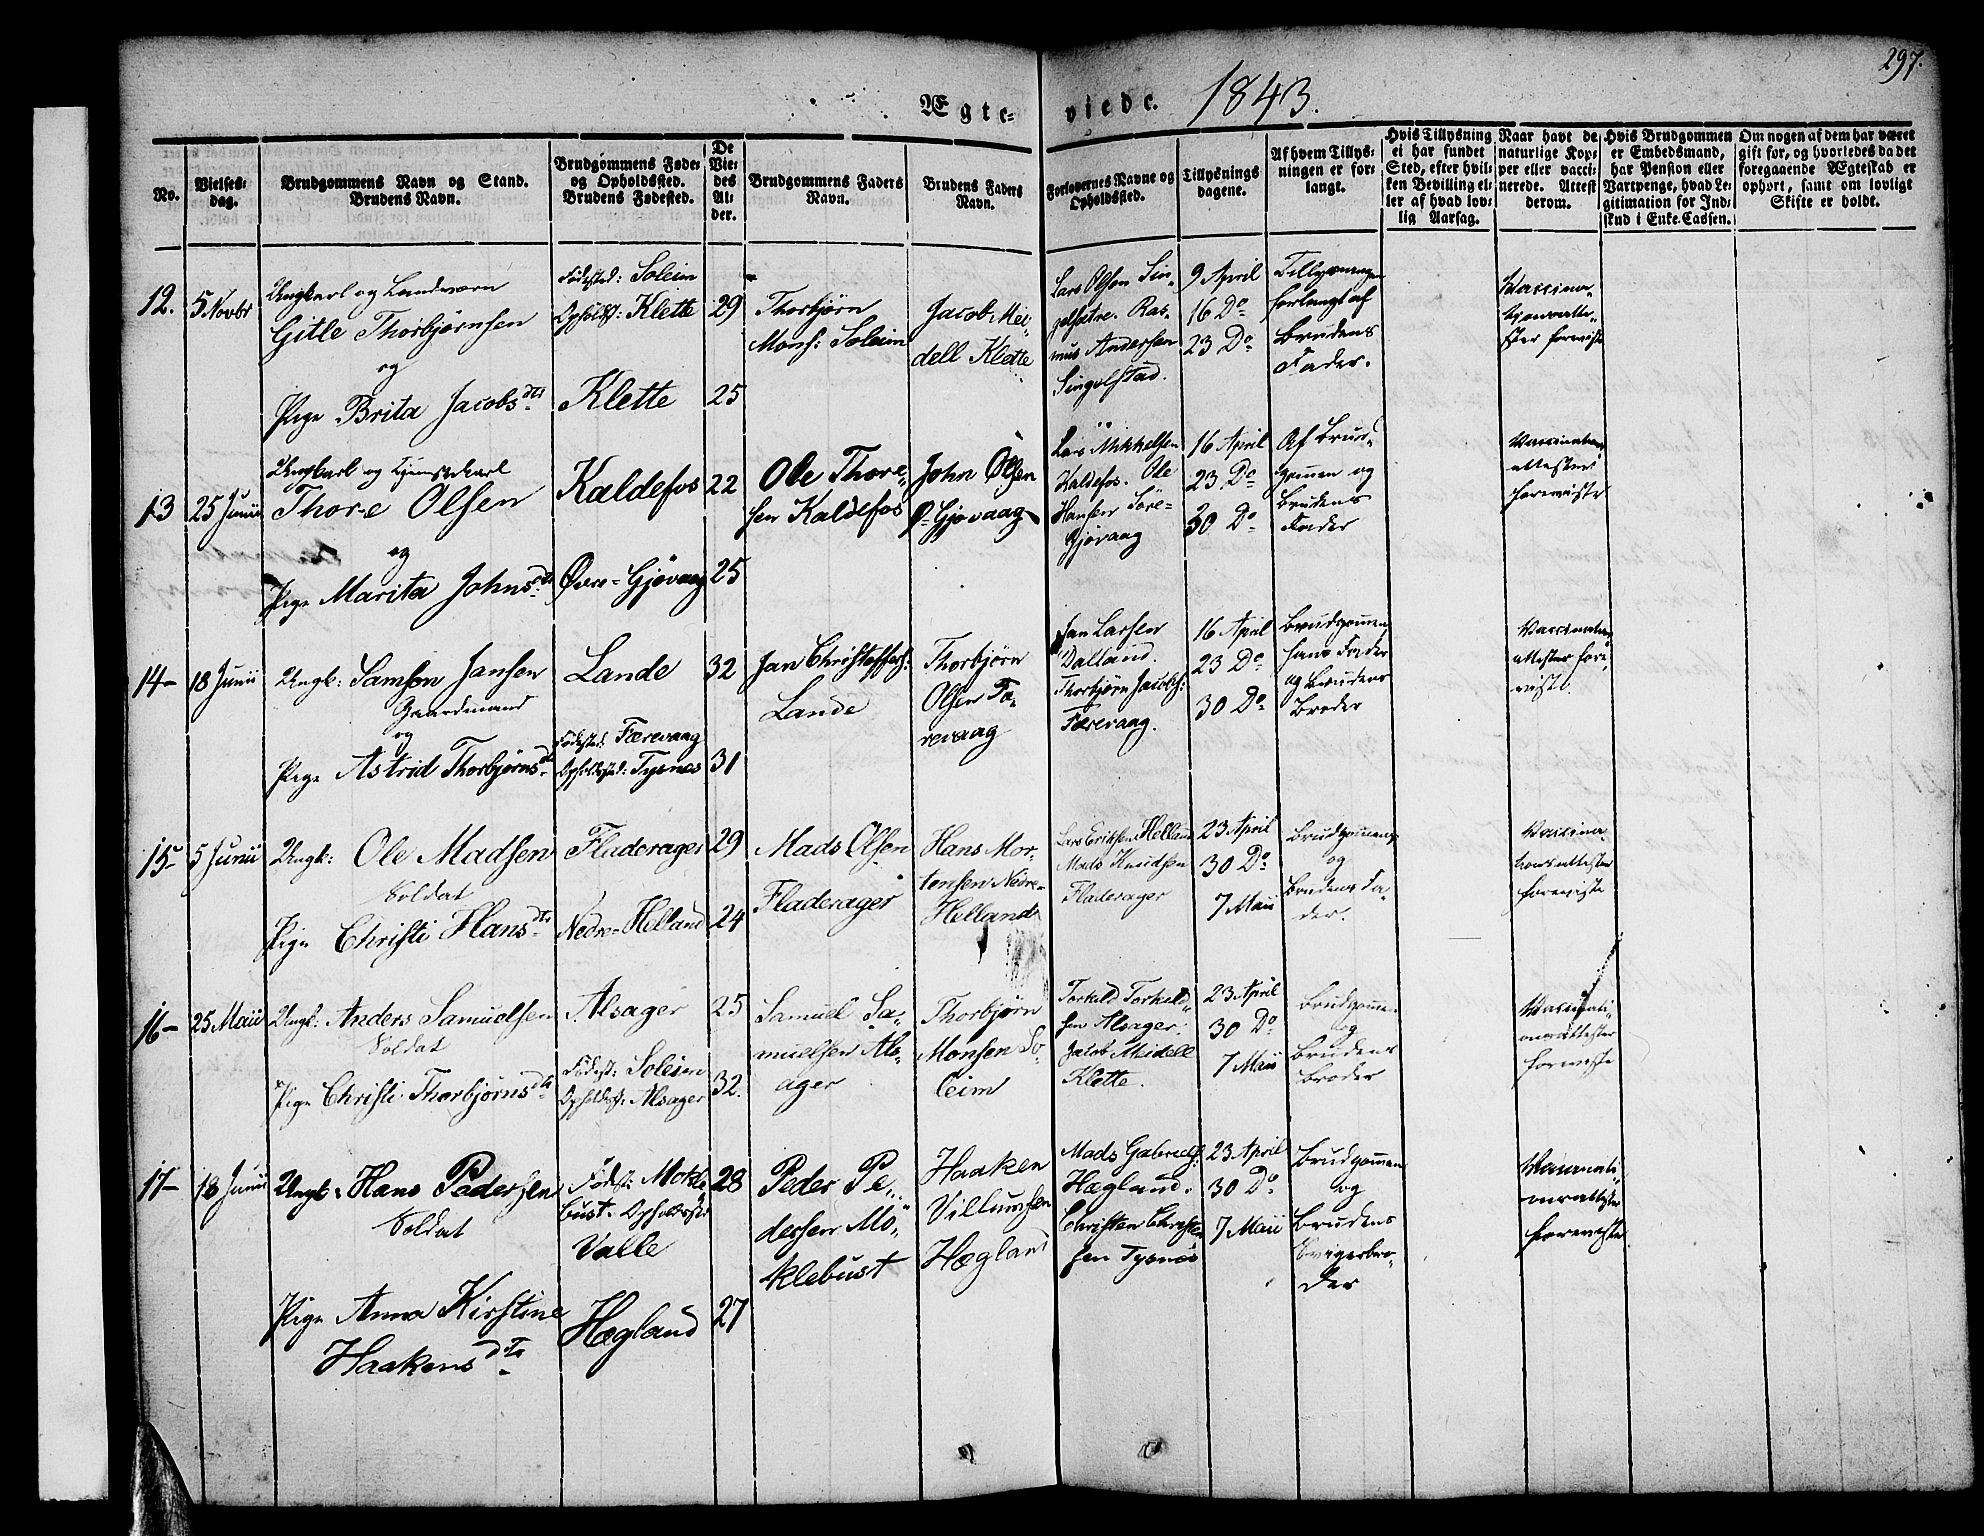 297.
Ægte=
viede.
1843.
No.
Vielses=
dag.
Brudgommens Navn og Stand.
Brudens Navn.
Brudgommens Føde=
og Opholdssted.
Brudens Fødested.
De
Vie=
des
Al=
der.
Brudgommens Faders
Navn.
Brudens Faders
Navn.
Forlovernes Navne og
Opholdssted.
Tillysnings
dagene.
Af hvem Tillys=
ningen er for=
langt.
Hvis Tillysning
ei har fundet
Sted, efter hvil=
ken Bevilling el=
ler af hvad lov=
lig Aarsag.
Naar havt de
naturlige Kop=
per eller vacci=
nerede. Attest
derom.
Hvis Brudgommen
er Embedsmand,
har Pension eller
Vartpenge, hvad Le=
gitimation for Ind=
skud i Enke-Cassen.
Om nogen af dem har været
gift før, og hvorledes da det
foregaaende Ægteskab er
ophørt, samt om lovligt
Skifte er holdt.
12.
5 Novbr
Ungkarl og Landværn
Gitle Thorbjørnsen
og
Pige Brita Jacobsdtr
Fødested: Soleim
Opholdst: Klette
Klette
29
25
Thorbjørn
Mons: Soleim
Jacob Mei=
dell Klette
Lars Olsen Sin=
gelsstre. Ras=
mus Andersen
Singelstad.
9 April
16 Do
23 Do
Tillysningen
forlangt af
Brudens
Fader.
Vaccina=
tionsatte=
ster foreviste
13
25 Junii
Ungkarl og Tjenestekarl
Thore Olsen
og
Pige Marita Johnsdtr
Kaldefos
Øvre=Gjøvaag
22
25
Ole Thore=
sen Kaldefos
John Olsen
Ø=Gjøvaag
Lars Mikkelsen
Kaldefos. Ole
Hansen Søre=
Gjøvaag
16 April
23 Do
30 Do
Af Brud=
gommen og
Brudens
Fader
Vaccinations
attester
foreviste
14
18 Junii
Ungk: Samson Jansen
Gaardmand
og
Pige Astrid Thorbjørnsdtr
Lande
Fødested: Færevaag
Opholdssted: Tysnes
32
31
Jan Christoffers:
Lande
Thorbjørn
Olsen Fæ=
revaag
Jan Larsen
Dalland.
Thorbjørn Jacobs:
Færevaag.
16 April
23 Do
30 Do
Brudgommen
hans Fader
og Brudens
Broder
Vaccinations
attester fore=
viste.
15
5 Junii
Ungk: Ole Madsen
Soldat
Pige Christi Hansdtr
Fladerager
Nedre=Helland
29
24
Mads Olsen
Fladerager
Hans Mor=
tensen Nedre=
Helland
Lars Eriksen Helland
Mads Knudsen
Fladerager
23 April
30 Do
7 Maii
Brudgommens
og
Brudens Fa=
der.
Vaccina=
tionsattester
foreviste
16
25 Maii
Ungk: Anders Samuelsen
Soldat
Pige Christi Thorbjørnsdtr
Alsager
Fødest: Soleim
Opholdsst: Alsager
25
32.
Samuel Sa=
muelsen Als=
ager
Thorbjørn
Monsen So=
leim
Torkild Torkild=
sen Alsager.
Jacob Meidell
Klette.
23 April
30 Do
7 Maii
Brudgommen
og
Brudens
Broder
Vaccinati=
onsattester
foreviste
17
18 Junii
Ungk: Hans Pedersen
Soldat
Pige Anna Kirstine
Haakensdtr
Fødest: Mokle=
bust. Opholdssted
Valle
Hægland
28
27
Peder Pe=
dersen Mo=
klebust
Haaken
Villumsen
Hægland
Mads Gabriels:
Hægland.
Christen Christen=
sen Tysnes
23 April
30 Do
7 Maii
Brudgommen
og
Brudens
Svigerbro=
der
Vaccinati=
onsattester
foreviste